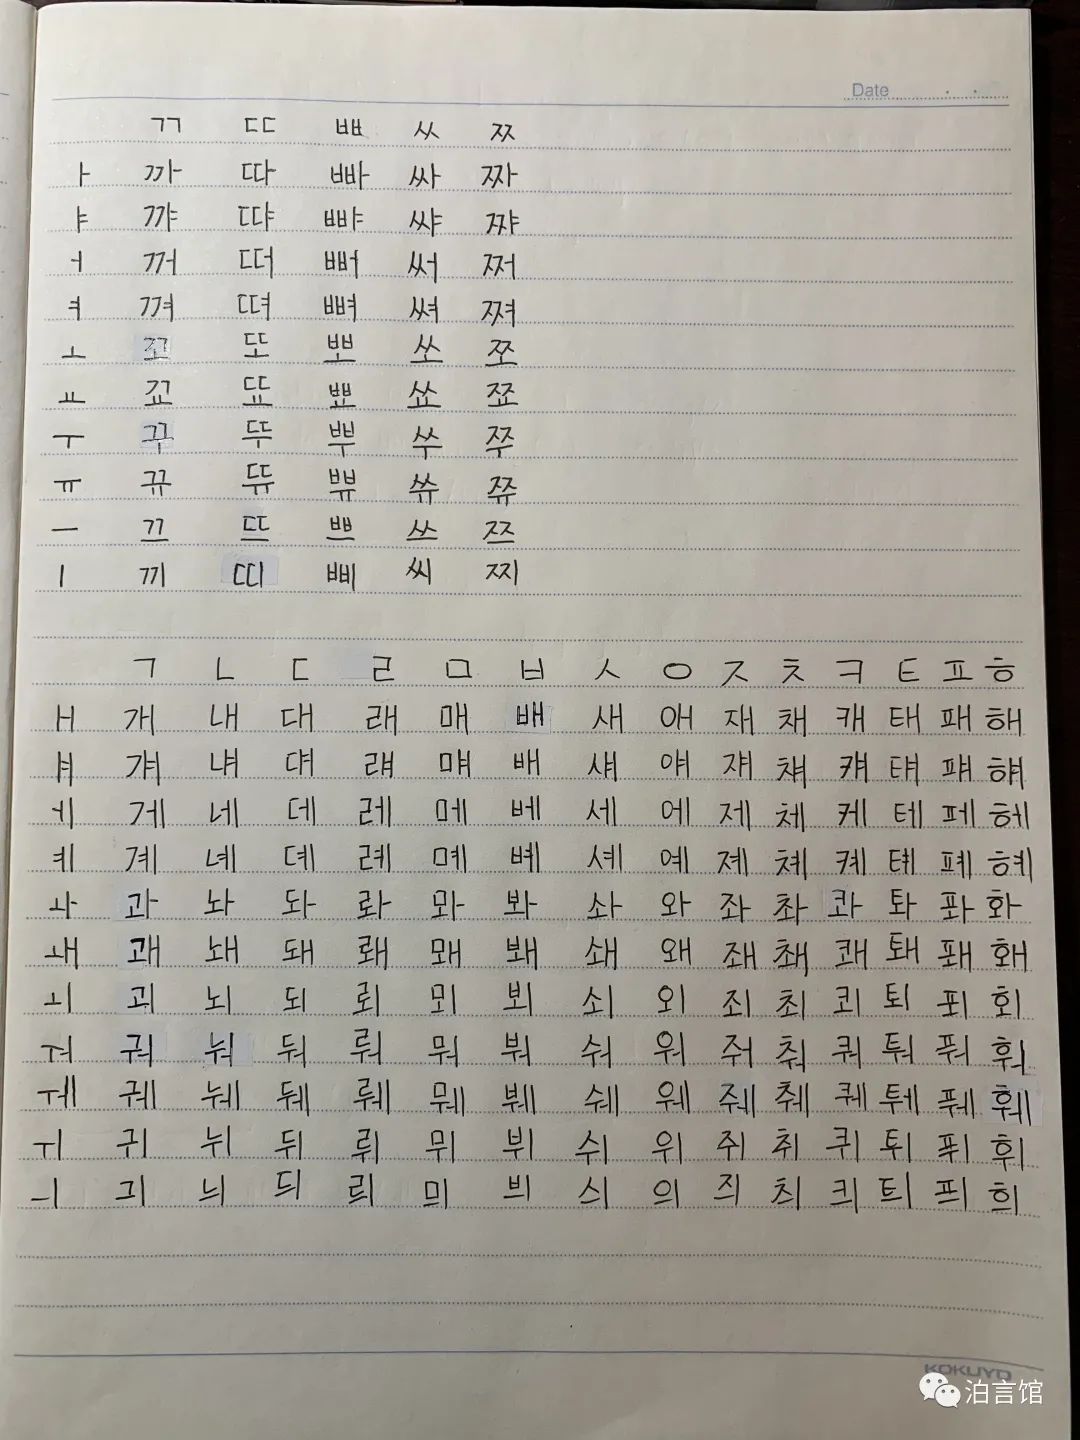 Date
ㄲ ㄸ ㅃ ㅆ ㅉ
ㅏ 까 따 빠 싸 짜
ㅑ 꺄 땨 뺘 쌰 쨔
ㅓ 꺼 떠 뻐 써 쩌
ㅕ 껴 뗘 뼈 쎠 쪄
ㅗ 꼬 또 뽀 쏘 쪼
ㅛ 꾜 뚀 뾰 쑈 쬬
ㅜ 꾸 뚜 뿌 쑤 쭈
ㅠ 뀨 뜌 쀼 쓔 쮸
ㅡ 끄 뜨 쁘 쓰 쯔
ㅣ 끼 띠 삐 씨 찌
ㄱ ㄴ ㄷ ㄹ ㅁ ㅂ ㅅ ㅇ ㅈ ㅊ ㅋ ㅌ ㅍ ㅎ
ㅐ 개 내 대 래 매 배 새 애 재 채 캐 태 패 해
ㅒ 걔 냬 댸 럐 먜 배 섀 얘 쟤 챼 컈 턔 퍠 햬
ㅔ 게 네 데 레 메 베 세 에 제 체 케 테 페 헤
ㅖ 계 녜 뎨 례 몌 볘 셰 예 졔 쳬 켸 톄 폐 혜
ㅘ 과 놔 돠 롸 뫄 봐 솨 와 좌 촤 콰 톼 퐈 화
ㅙ 괘 놰 돼 뢔 뫠 봬 쇄 왜 좨 쵀 쾌 퇘 퐤 홰
ㅚ 괴 뇌 되 뢰 뫼 뵈 쇠 외 죄 최 쾨 퇴 푀 회
ㅝ 궈 눠 둬 뤄 뭐 붜 숴 워 줘 춰 쿼 퉈 풔 훠
ㅞ 궤 눼 뒈 뤠 뭬 붸 쉐 웨 줴 췌 퀘 퉤 풰 훼
ㅟ 귀 뉘 뒤 뤼 뮈 뷔 쉬 위 쥐 취 퀴 튀 퓌 휘
ㅢ 긔 늬 듸 릐 믜 븨 싀 의 즤 츼 킈 틔 픠 희
KOKUYO
泊言馆